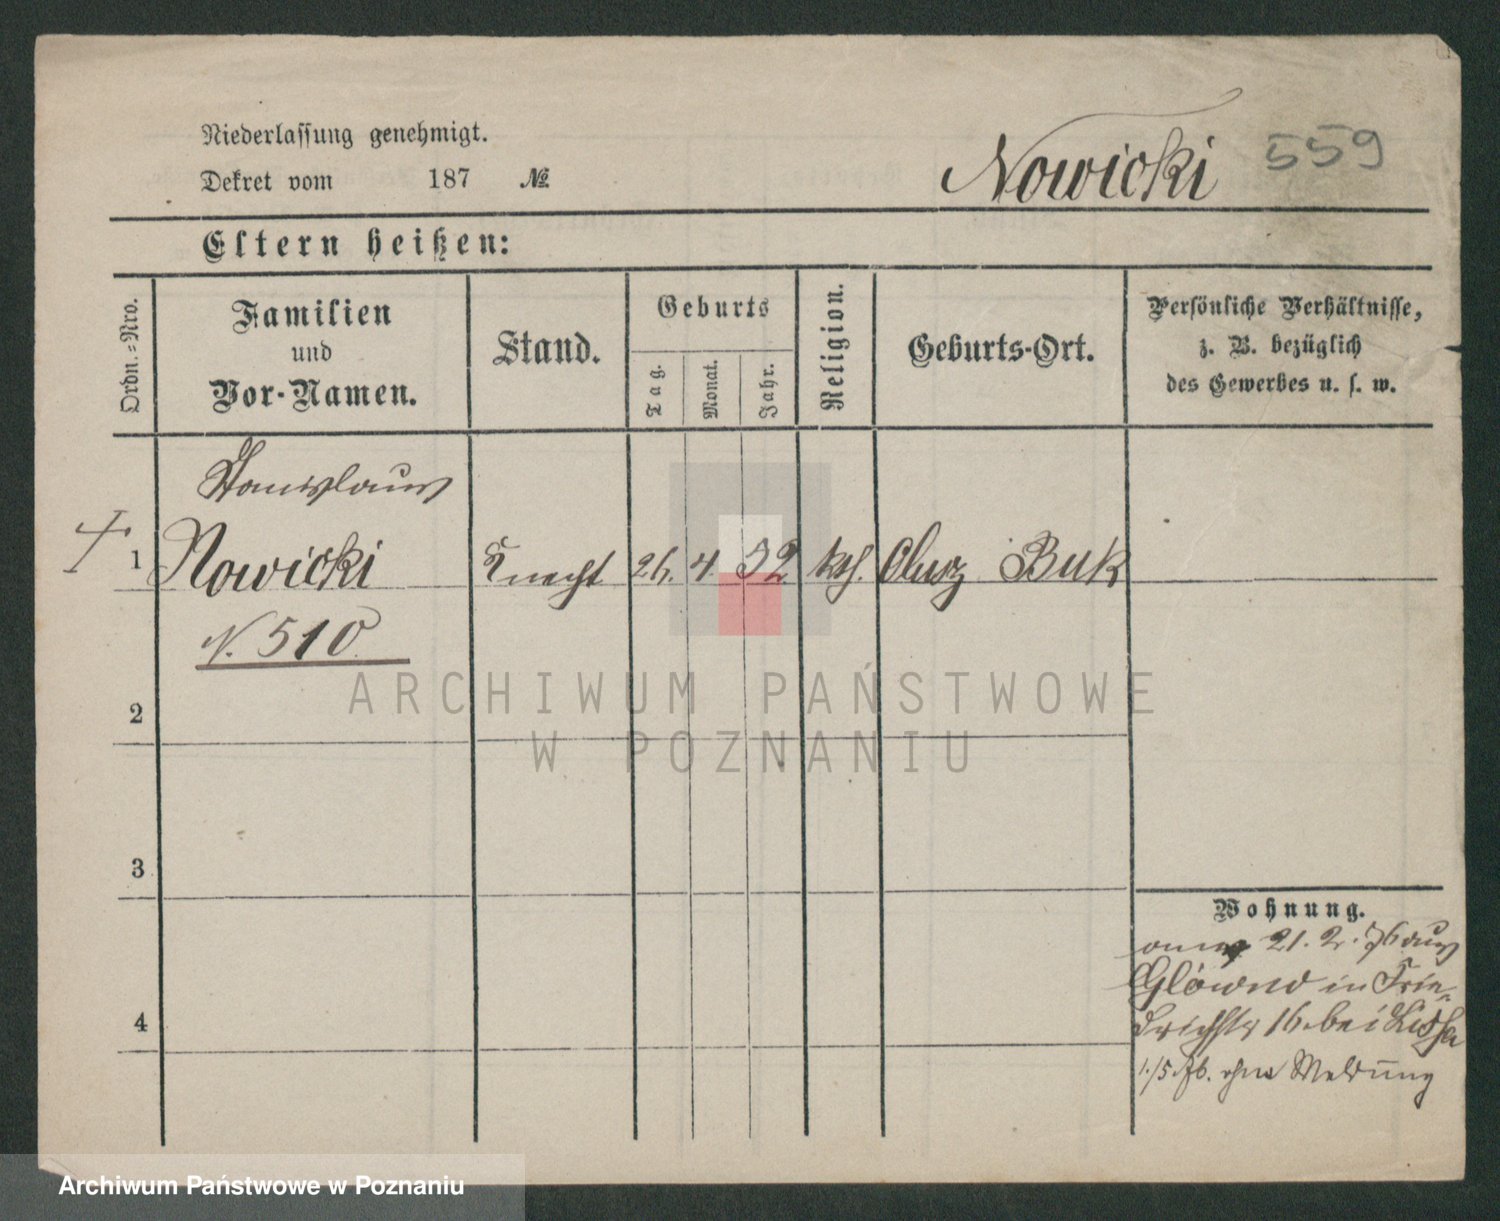 Niederlassung genehmigt.
Dekret vom 187 №
Nowicki 559
Eltern heißen:
Ordn.=Nro.
Familien
und
Vor-Namen.
Stand.
Geburts
Tag.
Monat.
Jahr.
Religion.
Geburts-Ort.
Persönliche Verhältnisse,
z. B. bezüglich
des Gewerbes u. s. w.
Stanislaus
1 Nowicki Knecht 26. 4. 52 kth. Buk
N. 510
2
3
4
Wohnung.
21. 2. 76 aus
Glówno in Frie-
drichstr 16. bei
1./5 76. ohne Meldung
ARCHIWUM PAŃSTWOWE
W POZNANIU
Archiwum Państwowe w Poznaniu